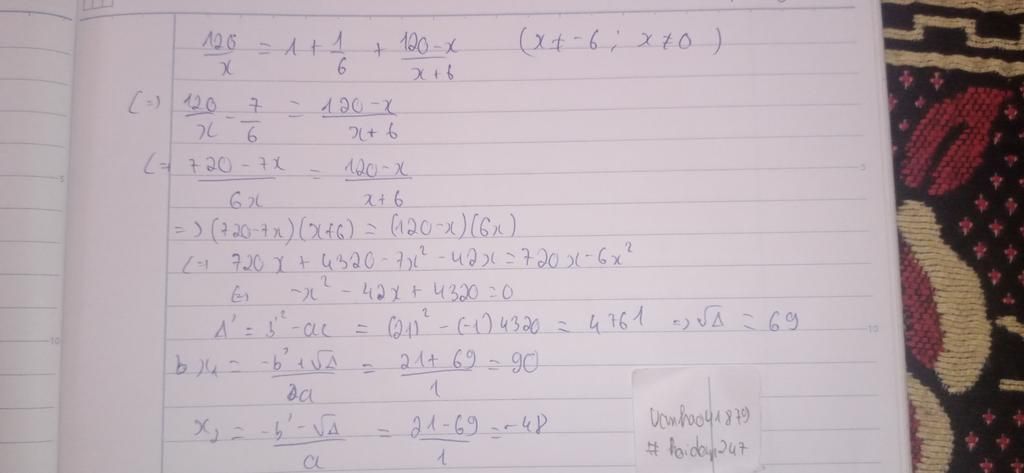 120/x = 1 + 1/6 + (120-x)/(x+6) (x≠-6; x≠0)
(=) 120/x - 7/6 = (120-x)/(x+6)
(= (720-7x)/6x = (120-x)/(x+6)
=) (720-7x)(x+6) = (120-x)(6x)
(=) 720x + 4320 - 7x² - 42x = 720x - 6x²
(=) -x² - 42x + 4320 = 0
Δ' = b'² - ac = (21)² - (-1)4320 = 4761 =) √Δ = 69
x₁ = (-b'+√Δ)/2a = (21+69)/1 = 90
x₂ = (-b'-√Δ)/a = (21-69)/1 = -48
Vanhao41879
#hoidap247
5
10
5
10